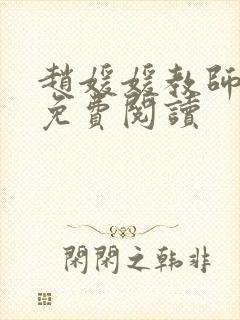 趙媛媛教師
免費閱讀
閑閑之韩非